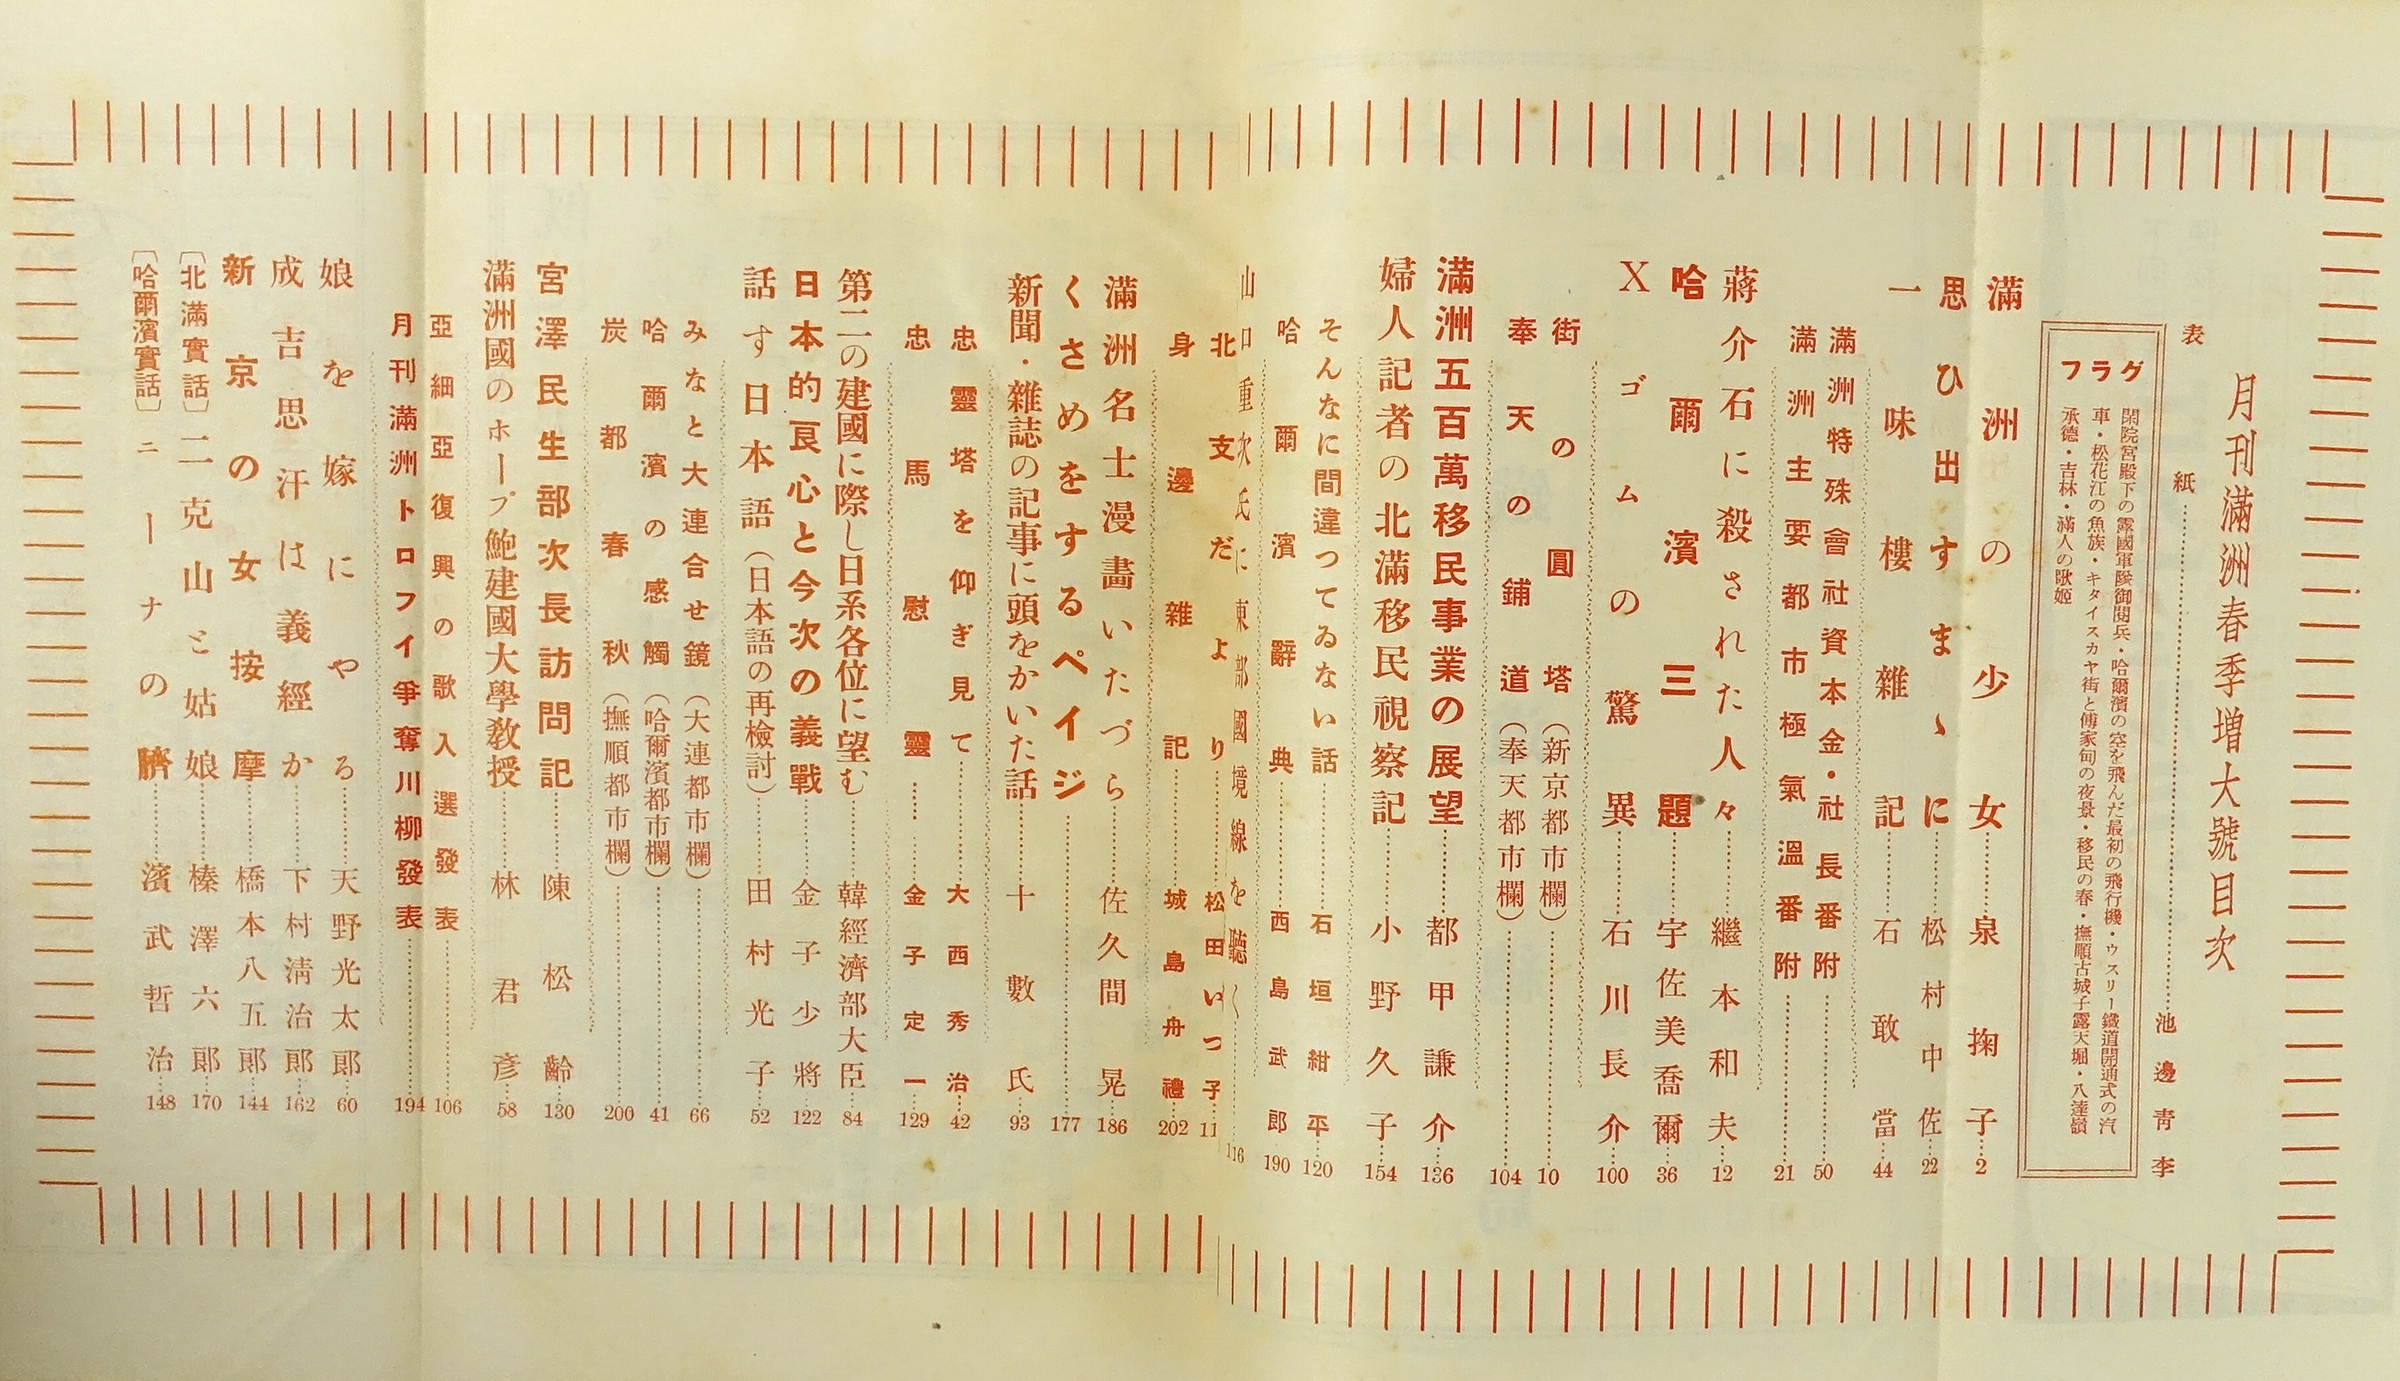 月刊滿洲春季増大號目次
表紙 池邊靑李
グラフ
閑院宮殿下の露國軍隊御閲兵・哈爾濱の空を飛んだ最初の飛行機・ウスリー鐵道開通式の汽
車・松花江の魚族・キタイスカヤ街と傅家甸の夜景・移民の春・撫順古城子露天堀・八達嶺
承德・吉林・滿人の歌姬
滿洲の少女 泉掬子 2
思ひ出すまゝに 松村中佐 22
一味樓雜記 石敢當 44
滿洲特殊會社資本金・社長番附 50
滿洲主要都市極氣溫番附 21
蔣介石に殺された人々 繼本和夫 12
哈爾濱三題 宇佐美喬爾 36
Xゴムの驚異 石川長介 100
街の圓塔（新京都市欄） 10
奉天の鋪道（奉天都市欄） 104
滿洲五百萬移民事業の展望 都甲謙介 136
婦人記者の北滿移民視察記 小野久子 154
そんなに間違つてゐない話 石垣紺平 120
哈爾濱辭典 西島武郎 190
山口重次氏に東部國境線を聽く 116
北支だより 松田いつ子 11
身邊雜記 城島舟禮 202
滿洲名士漫畵いたづら 佐久間晃 186
くさめをするペイジ 177
新聞・雜誌の記事に頭をかいた話 十數氏 93
忠靈塔を仰ぎ見て 大西秀治 42
忠馬慰靈 金子定一 129
第二の建國に際し日系各位に望む 韓經濟部大臣 84
日本的良心と今次の義戰 金子少將 122
話す日本語（日本語の再檢討） 田村光子 52
みなと大連合せ鏡（大連都市欄） 66
哈爾濱の感觸（哈爾濱都市欄） 41
炭都春秋（撫順都市欄） 200
宮澤民生部次長訪問記 陳松齡 130
滿洲國のホープ鮑建國大學教授 林君彥 58
亞細亞復興の歌入選發表 106
月刊滿洲トロフイ爭奪川柳發表 194
娘を嫁にやろ 天野光太郎 60
成吉思汗は義經か 下村淸治郎 162
新京の女按摩 橋本八五郎 144
〔北滿實話〕二克山と姑娘 榛澤六郎 170
〔哈爾濱實話〕ニーナの臍 濱武哲治 148